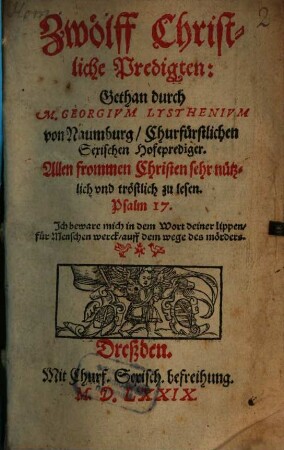 Zwölff Christ-
liche Predigten:
Gethan durch
M. GEORGIVM LYSTHENIVM
von Naumburg / Churfürstlichen
Sexischen Hofeprediger.
Allen frommen Christen sehr nütz-
lich vnd tröstlich zu lesen.
Psalm 17.
Ich beware mich in dem Wort deiner lippen/
für Menschen werck/auff dem wege des mörders.
Dreßden.
Mit Churf. Sexisch. befreihung.
M. D. LXXIX.